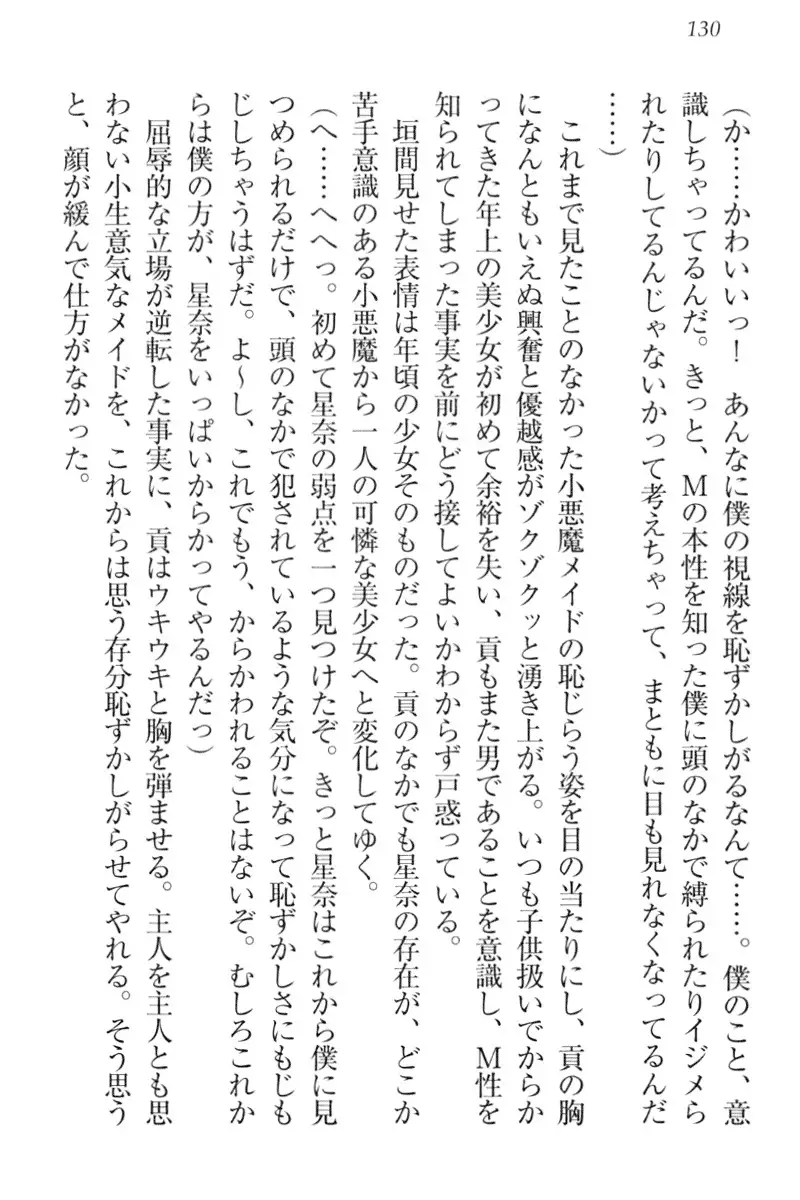 130
(か……かわいいっ！　あんなに僕の視線を恥ずかしがるなんて……。僕のこと、意
識しちゃってるんだ。きっと、Ｍの本性を知った僕に頭のなかで縛られたりイジメら
れたりしてるんじゃないかって考えちゃって、まともに目も見れなくなってるんだ
……)
　これまで見たことのなかった小悪魔メイドの恥じらう姿を目の当たりにし、貢の胸
になんともいえぬ興奮と優越感がゾクゾクッと湧き上がる。いつも子供扱いでからか
ってきた年上の美少女が初めて余裕を失い、貢もまた男であることを意識し、Ｍ性を
知られてしまった事実を前にどう接してよいかわからず戸惑っている。
　垣間見せた表情は年頃の少女そのものだった。貢のなかでも星奈の存在が、どこか
苦手意識のある小悪魔から一人の可憐な美少女へと変化してゆく。
(へ……へへっ。初めて星奈の弱点を一つ見つけたぞ。きっと星奈はこれから僕に見
つめられるだけで、頭のなかで犯されているような気分になって恥ずかしさにもじも
じしちゃうはずだ。よ～し、これでもう、からかわれることはないぞ。むしろこれか
らは僕の方が、星奈をいっぱいからかってやるんだっ)
　屈辱的な立場が逆転した事実に、貢はウキウキと胸を弾ませる。主人を主人とも思
わない小生意気なメイドを、これからは思う存分恥ずかしがらせてやれる。そう思う
と、顔が緩んで仕方がなかった。